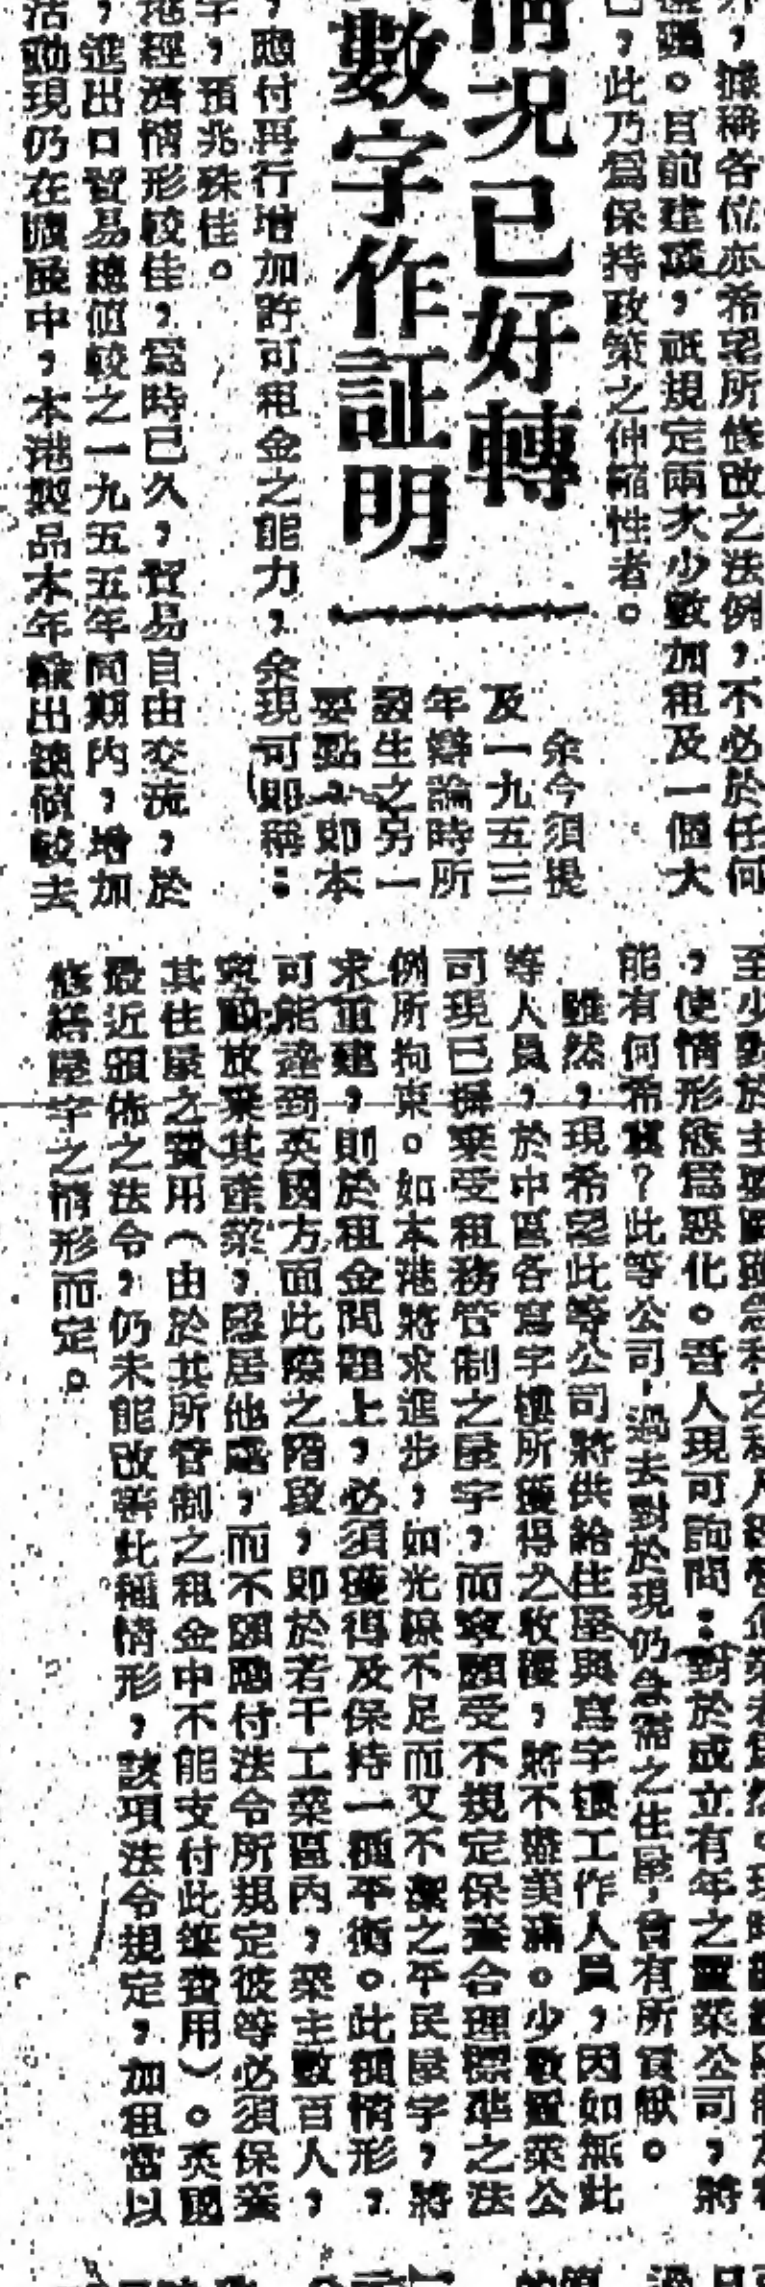 外，據稱各位亦希望所修改之法例，不必於任何
。目前建議，祇規定兩次少數加租及一個大
已，此乃爲保持政策之伸縮性者。
情況已好轉
數字作証明
余今須提
及一九五三
年辯論時所
發生之另一
要點，卽本
，應付再行增加許可租金之能力，余現可卽稱：
字，預兆殊佳。
港經濟情形較佳，爲時已久，貿易自由交流，於
，進出口貿易總值較之一九五五年同期內，增加
活動現仍在擴展中，本港製品本年輸出總值較去
，使情形愈爲惡化。吾人現可詢問：對於成立有年之置業公司，將
能有何希冀？此等公司，過去對於現仍急需之住屋，曾有所貢獻。
雖然，現希望此等公司將供給住屋與寫字樓工作人員，因如無此
等人員，於中區各寫字樓所獲得之收穫，將不遊美滿。少數置業公
司現已摒棄受租務管制之屋宇，而寧願受不規定保養合理標準之法
例所拘束。如本港將求進步，如光線不足而又不潔之平民屋宇，將
求重建，則於租金問題上，必須獲得及保持一種平衡。此種情形，
可能達到英國方面此際之階段，卽於若干工業區內，業主數百人，
寧願放棄其產業，隱居他處，而不願應付法令所規定彼等必須保養
其住屋之費用（由於其所管制之租金中不能支付此筆費用）。英國
最近頒佈之法令，仍未能改善此種情形，該項法令規定，加租當以
修繕屋宇之情形而定。